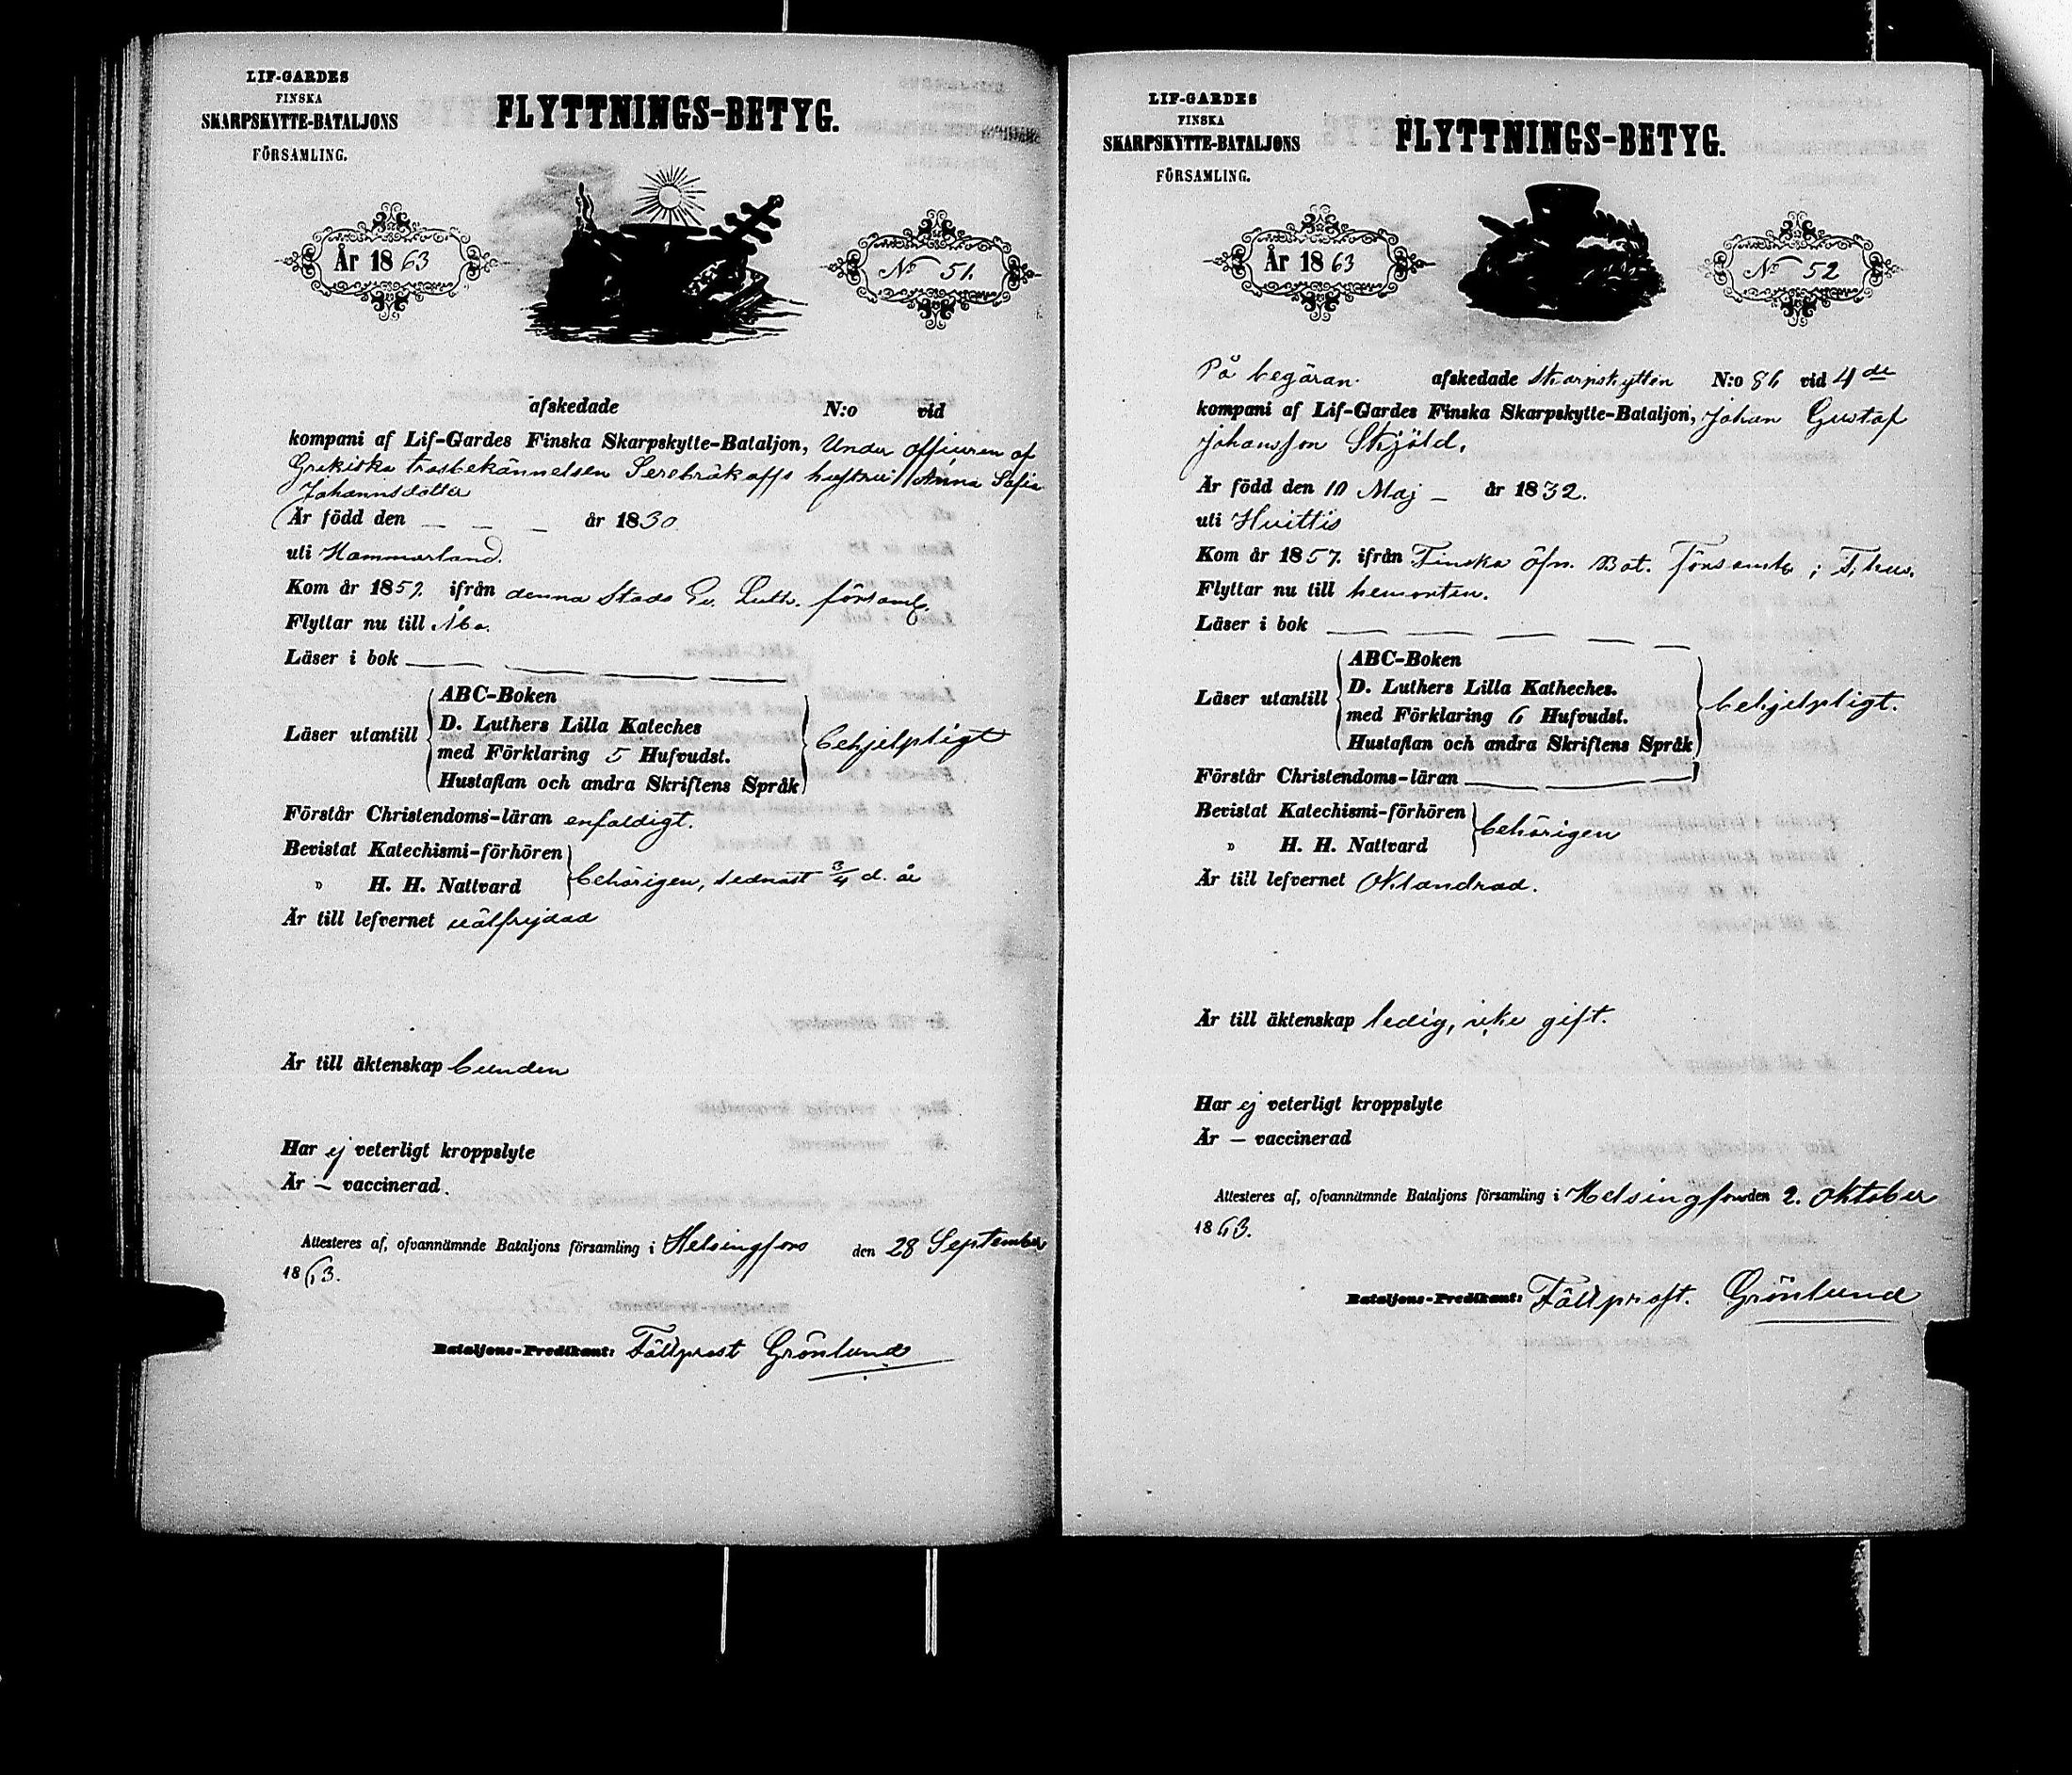 LIF-GARDES
FINSKA
SKARPSKYTTE-BATALJONS
FÖRSAMLING.
FLYTTNINGS-BETYG.
År 1863
No 51.
afskedade N:o vid
kompani af Lif-Gardes Finska Skarpskytte-Bataljon, Under officeren af
Grekiska trosbekännelsen Serebräkoffs hustru Anna Sofia
Johannsdotter
Är född den — — — år 1830
uti Hammarland.
Kom år 1857. ifrån denna Stads Ev. Luth. församl.
Flyttar nu till Åbo.
Läser i bok — — — —
Läser utantill
ABC-Boken
D. Luthers Lilla Kateches
med Förklaring 5 Hufvudst.
Hustaflan och andra Skriftens Språk
behjelpligt
Förstår Christendoms-läran enfaldigt.
Bevistat Katechismi-förhören
" H. H. Nattvard
behörigen, sednast 3/4 d. år
Är till lefvernet välfrejdad
Är till äktenskap bunden
Har ej veterligt kroppslyte
Är — vaccinerad.
Attesteres af, ofvannämnde Bataljons församling i Helsingfors den 28 September
1863.
Bataljons-Predikant: Fältprost Grönlund
LIF-GARDES
FINSKA
SKARPSKYTTE-BATALJONS
FÖRSAMLING.
FLYTTNINGS-BETYG.
År 1863
No 52
På begäran afskedade Skarpskytten N:o 86 vid 4de
kompani af Lif-Gardes Finska Skarpskytte-Bataljon, Johan Gustaf
Johansson Skjöld,
Är född den 10 Maj — år 1832.
uti Huittis
Kom år 1857. ifrån Finska Öfn. Bat. Församlg i T:hus.
Flyttar nu till hemorten.
Läser i bok — — — —
Läser utantill
ABC-Boken
D. Luthers Lilla Katheches.
med Förklaring 6 Hufvudst.
Hustaflan och andra Skriftens Språk
behjelpligt.
Förstår Christendoms-läran — — —
Bevistat Katechismi-förhören
" H. H. Nattvard
behörigen
Är till lefvernet oklandrad.
Är till äktenskap ledig, icke gift.
Har ej veterligt kroppslyte
Är — vaccinerad
Attesteres af, ofvannämnde Bataljons församling i Helsingfors den 2. Oktober
1863.
Bataljons-Predikant: Fältprost. Grönlund